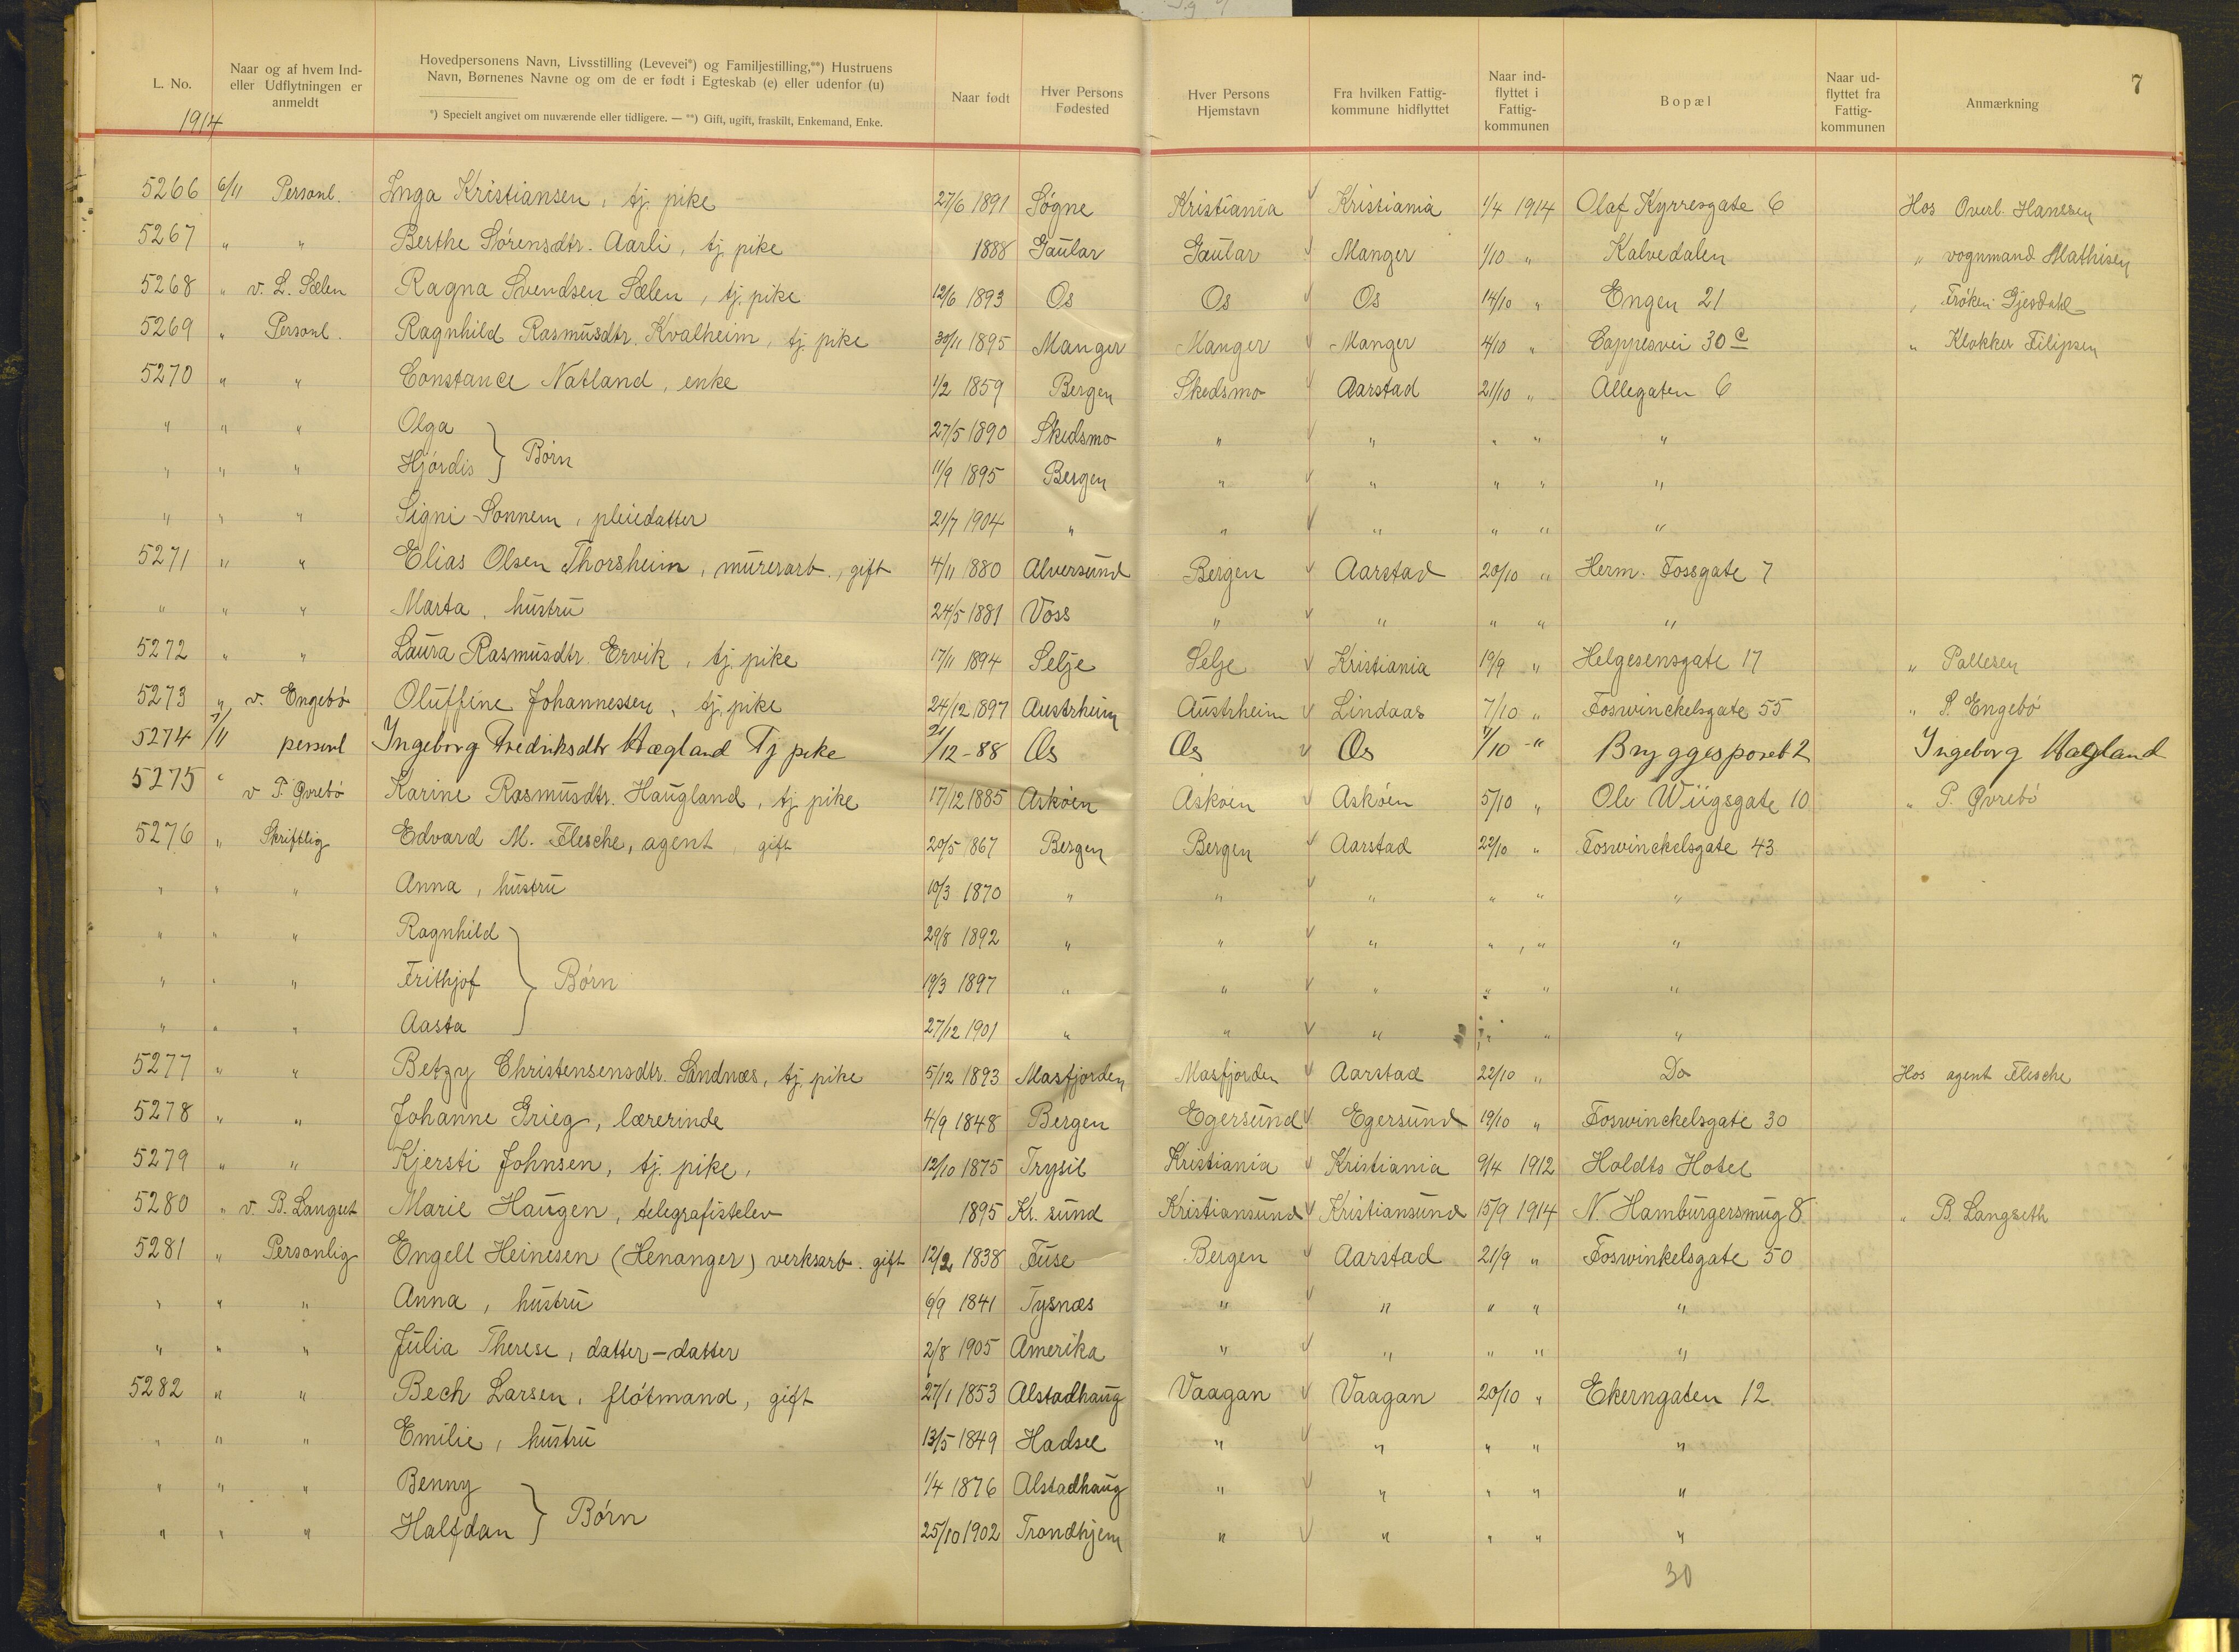 7
L. No.
1914
Naar og af hvem Ind-
eller Udflytningen er
anmeldt
Hovedpersonens Navn, Livsstilling (Levevei*) og Familjestilling,**) Hustruens
Navn, Børnenes Navne og om de er født i Egteskab (e) eller udenfor (u)
*) Specielt angivet om nuværende eller tidligere. — **) Gift, ugift, fraskilt, Enkemand, Enke.
Naar født
Hver Persons
Fødested
Hver Persons
Hjemstavn
Fra hvilken Fattig-
kommune hidflyttet
Naar ind-
flyttet i
Fattig-
kommunen
Bopæl
Naar ud-
flyttet fra
Fattig-
kommunen
Anmærkning
5266 6/11 Personl. Inga Kristiansen, tj. pike 27/6 1891 Søgne Kristiania Kristiania 1/4 1914 Olaf Kyrresgate 6 Hos Overl. Hanssen
5267 " " Berthe Sørensdtr. Aarli, tj. pike 1888 Gaular Gaular Manger 1/10 " Kalvedalen " vognmand Mathisen
5268 " v. L. Sælen Ragna Svendsen Sælen, tj. pike 12/6 1893 Os Os Os 14/10 " Engen 21 " Frøken Gjesdahl
5269 " Personl. Ragnhild Rasmusdtr. Kvalheim, tj. pike 30/11 1895 Manger Manger Manger 4/10 " Cappesvei 30 c " Klokker Filipsen
5270 " " Constance Natland, enke 1/2 1859 Bergen Skedsmo Aarstad 21/10 " Allegaten 6
" " " Olga 27/5 1890 Skedsmo " " " " "
" " " Hjørdis } Børn 11/9 1895 Bergen " " " " "
" " " Signi Sonnem, pleiedatter 21/7 1904 " " " " " "
5271 " " Elias Olsen Thorsheim, murerarb., gift 4/11 1880 Alversund Bergen Aarstad 20/10 " Herm. Fossgate 7
" " " Marta, hustru 24/5 1881 Voss " " " " "
5272 " " Laura Rasmusdtr. Ervik, tj. pike 17/11 1894 Selje Selje Kristiania 19/9 " Helgesensgate 17 " Pallesen
5273 " v. Engebø Oluffine Johannessen, tj. pike 24/12 1897 Austrheim Austrheim Lindaas 7/10 " Foswinckelsgate 55 " S. Engebø
5274 7/11 personl Ingeborg Fredriksdtr Hægland Tj pike 21/12-88 Os Os Os 1/10 -" Bryggesporet 2 Ingeborg Hægland
5275 " v P. Øvrebø Karine Rasmusdtr. Haugland, tj. pike 17/12 1885 Askøen Askøen Askøen 5/10 " Ole Wiigsgate 10 " P. Øvrebø
5276 " Skriftlig Edvard M. Flesche, agent, gift 20/5 1867 Bergen Bergen Aarstad 22/10 " Foswinckelsgate 43
" " " Anna, hustru 10/3 1870 " " " " " "
" " " Ragnhild 29/8 1892 " " " " " "
" " " Frithjof } Børn 19/3 1897 " " " " " "
" " " Aasta 27/12 1901 " " " " " "
5277 " " Betzy Christensensdtr. Sandnæs, tj. pike 5/12 1893 Masfjorden Masfjorden Aarstad 22/10 " Do Hos agent Flesche
5278 " " Johanne Grieg, lærerinde 4/9 1848 Bergen Egersund Egersund 19/10 " Foswinckelsgate 30
5279 " " Kjersti Johnsen, tj. pike, 12/10 1875 Trysil Kristiania Kristiania 9/4 1912 Holdts Hotel
5280 " v. B. Langset Marie Haugen, telegrafistelev 1895 Kr. sund Kristiansund Kristiansund 15/9 1914 N. Hamburgersmug 8 " B. Langseth
5281 " Personlig Engell Heinesen (Henanger) verksarb. gift 12/2 1838 Fuse Bergen Aarstad 21/9 " Foswinkelsgate 50
" " " Anna, hustru 6/9 1841 Tysnæs " " " " "
" " " Julia Therese, datter-datter 2/8 1905 Amerika " " " " "
5282 " " Bech Larsen, fløtmand, gift 27/1 1853 Alstadhaug Vaagan Vaagan 20/10 " Ekerngaten 12.
" " " Emilie, hustru 13/5 1849 Hadsel " " " " "
" " " Benny 1/4 1876 Alstadhaug " " " " "
" " " Halfdan } Børn 25/10 1902 Trondhjem " " " " "
30